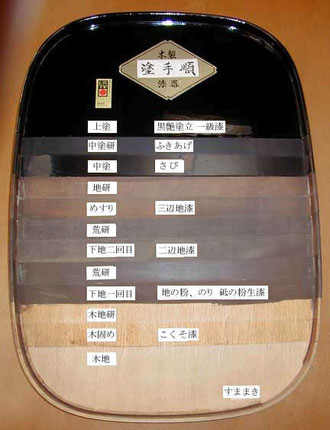 本製
塗手順
漆器
上塗 黒艶塗立 一級漆
中塗研 ふきあげ
中塗 さび
地研
めすり 三辺地漆
荒研
下地二回目 二辺地漆
荒研
下地一回目 地の粉、のり 砥の粉生漆
木地研
木固め こくそ漆
木地
すままき